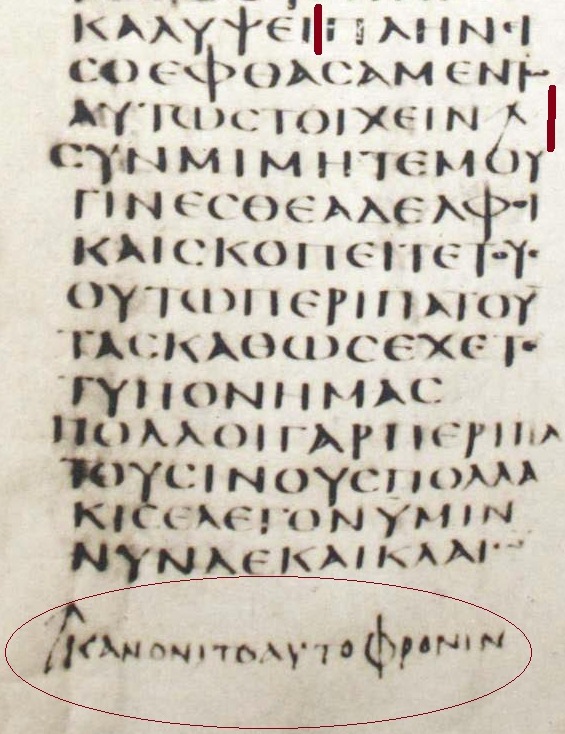 ΚΑΛΥΨΕΙΠΛΗΝΕΙ
ϹΟΕΦΘΑϹΑΜΕΝΤω
ΑΥΤΩϹΤΟΙΧΕΙΝ
ϹΥΝΜΙΜΗΤΕΜΟΥ
ΓΙΝΕϹΘΕΑΔΕΛΦΟΙ
ΚΑΙϹΚΟΠΕΙΤΕΤΟΥϹ
ΟΥΤΩΠΕΡΙΠΑΤΟΥ
ΤΑϹΚΑΘΩϹΕΧΕΤΕ
ΤΥΠΟΝΗΜΑϹ
ΠΟΛΛΟΙΓΑΡΠΕΡΙΠΑ
ΤΟΥϹΙΝΟΥϹΠΟΛΛΑ
ΚΙϹΕΛΕΓΟΝΥΜΙΝ
ΝΥΝΔΕΚΑΙΚΛΑΙω
ΚΑΝΟΝΙΤΟΑΥΤΟΦΡΟΝΙΝ